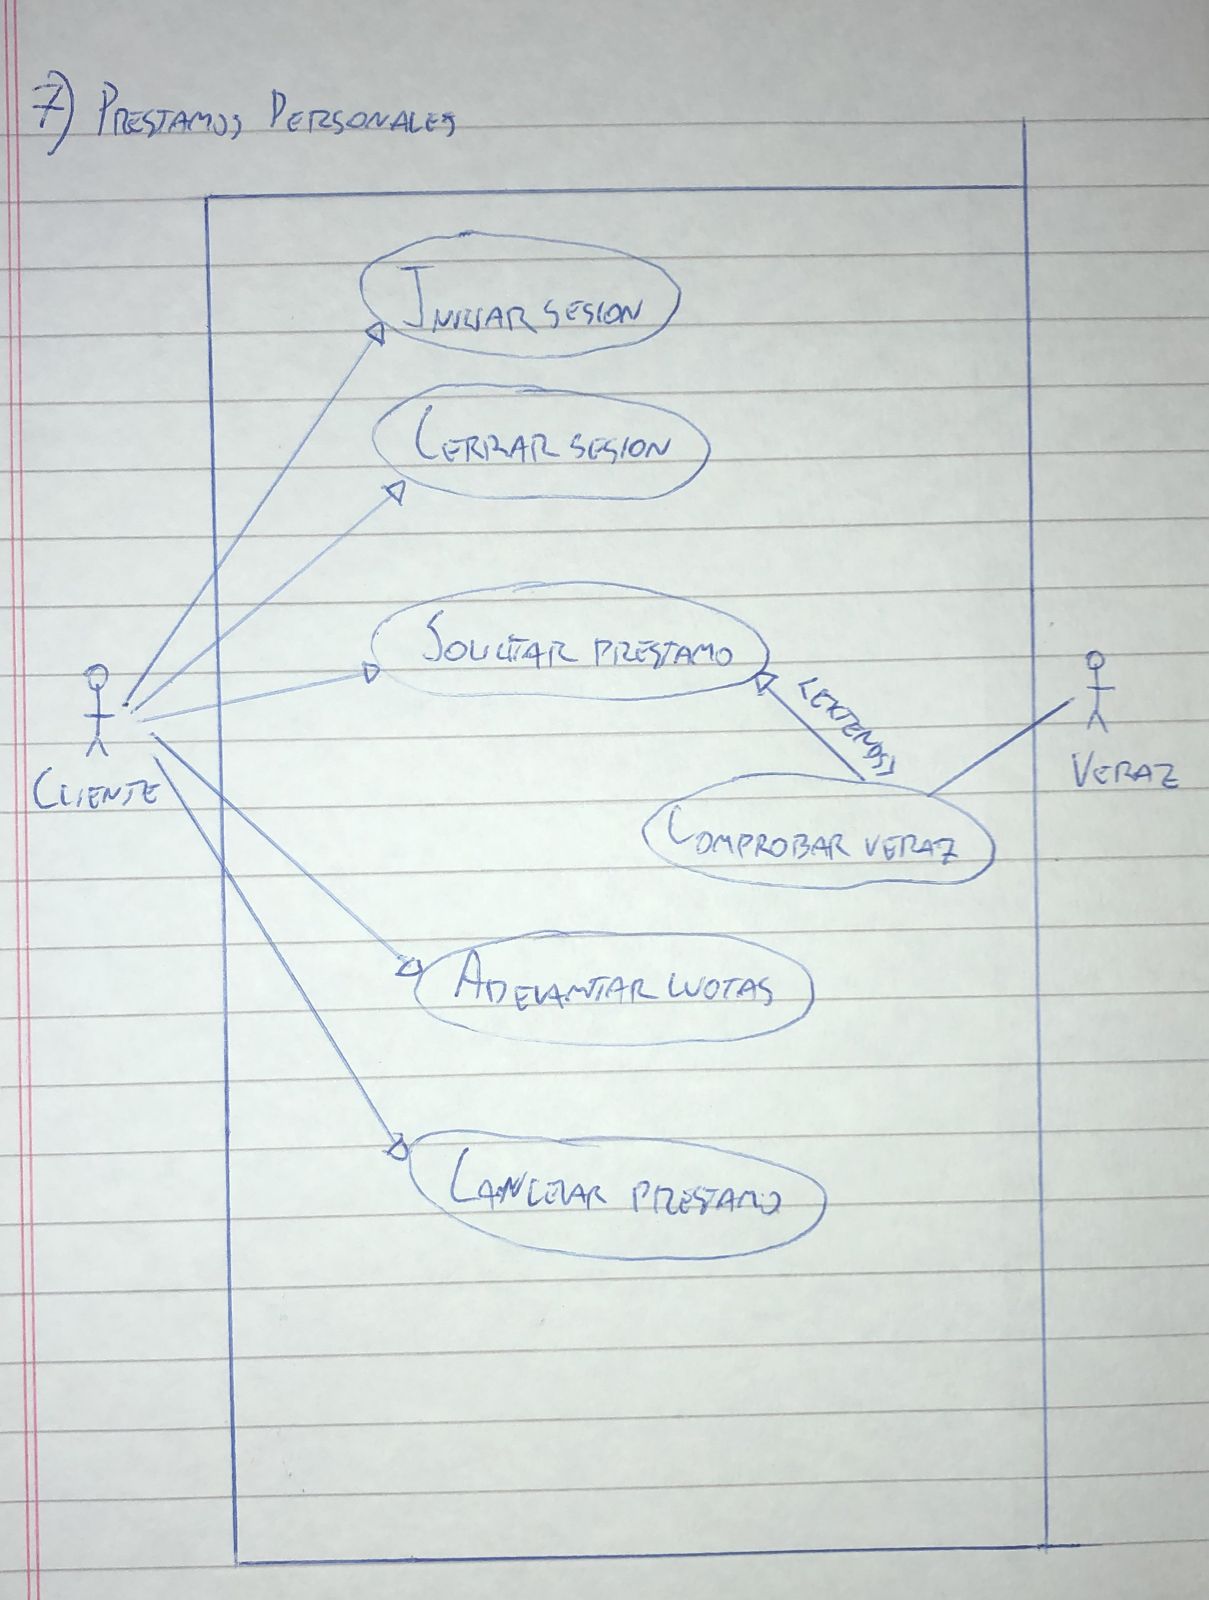 7) PRESTAMOS PERSONALES
INICIAR SESION
CERRAR SESION
SOLICITAR PRESTAMO
<EXTENDS>
CLIENTE
VERAZ
COMPROBAR VERAZ
ADELANTAR CUOTAS
CANCELAR PRESTAMO